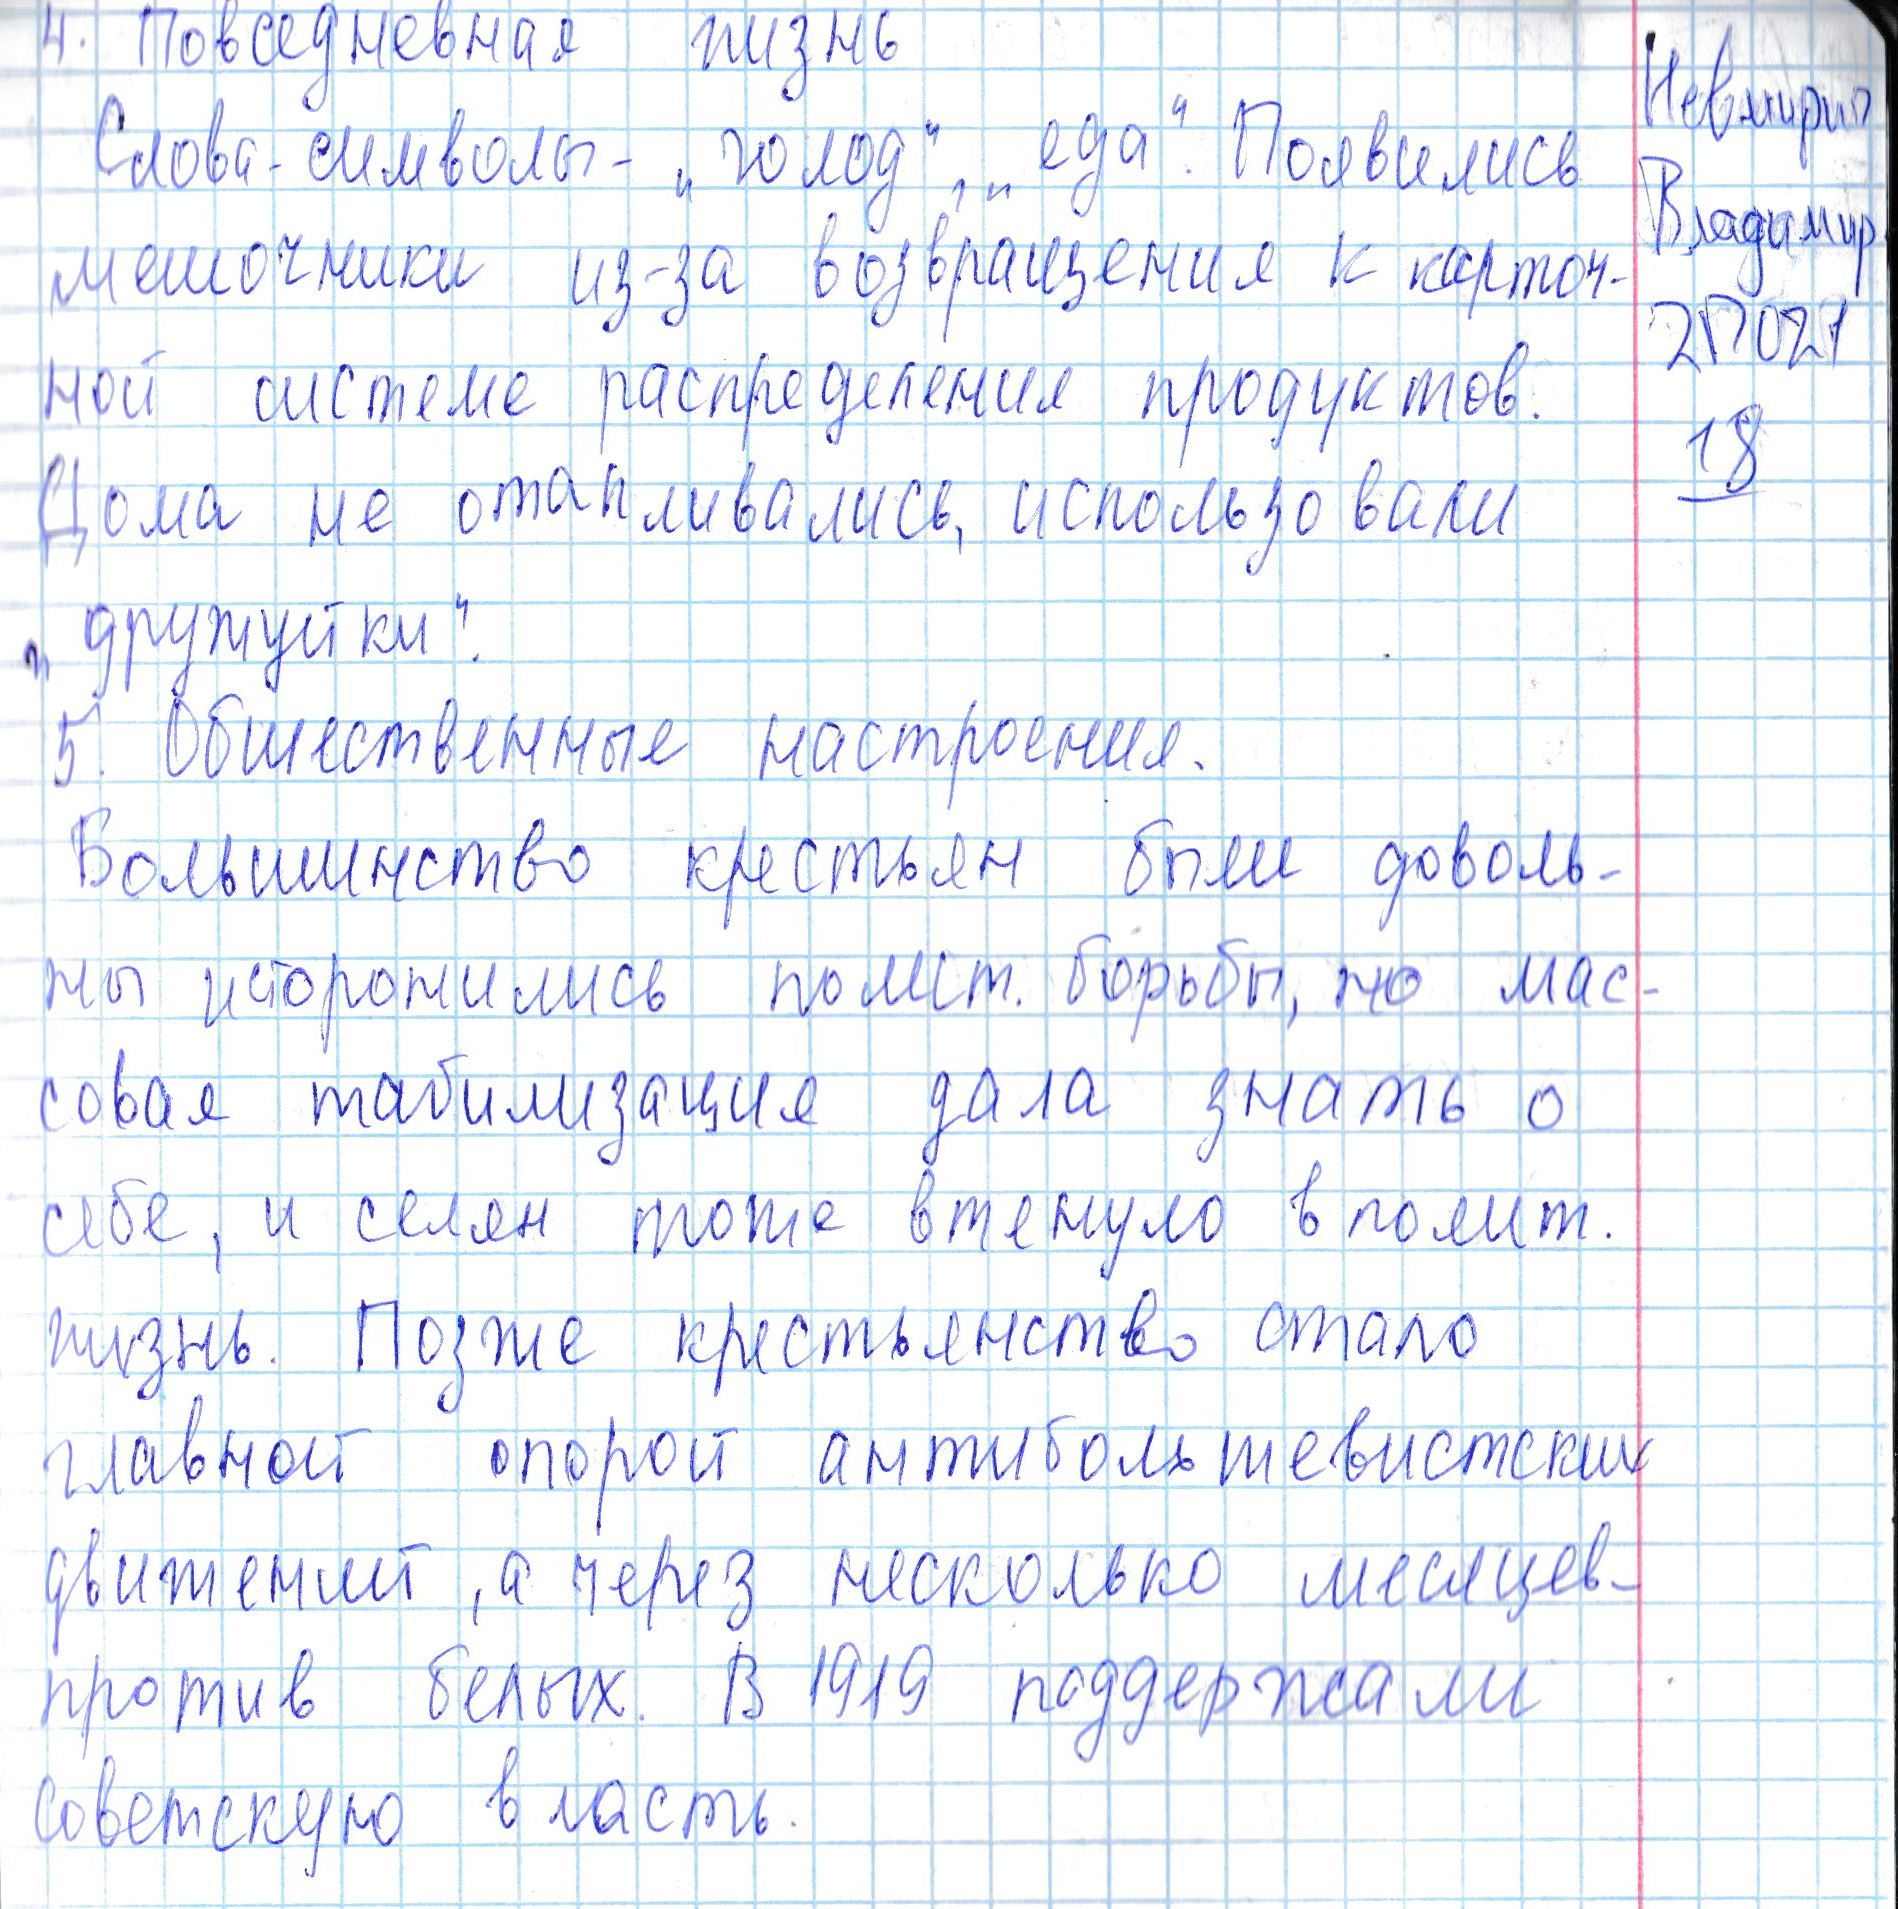 4. Повседневная жизнь
Слова-символы - „голод“, „еда“. Появились
мешочники из-за возвращения к карточ-
ной системе распределения продуктов.
Дома не отапливались, использовали
„дружуйки“.
5. Обшественные настроения.
Большинство крестьян были доволь-
ны и сторонились полит. борьбы, но мас-
совая мабилизация дала знать о
себе, и селян тоже втянуло в полит.
жизнь. Позже крестьянство стало
главной опорой антибольшевистских
движений, а через несколько месяцев-
против белых. В 1919 поддержали
советскую власть.
Владимир
2П021
18